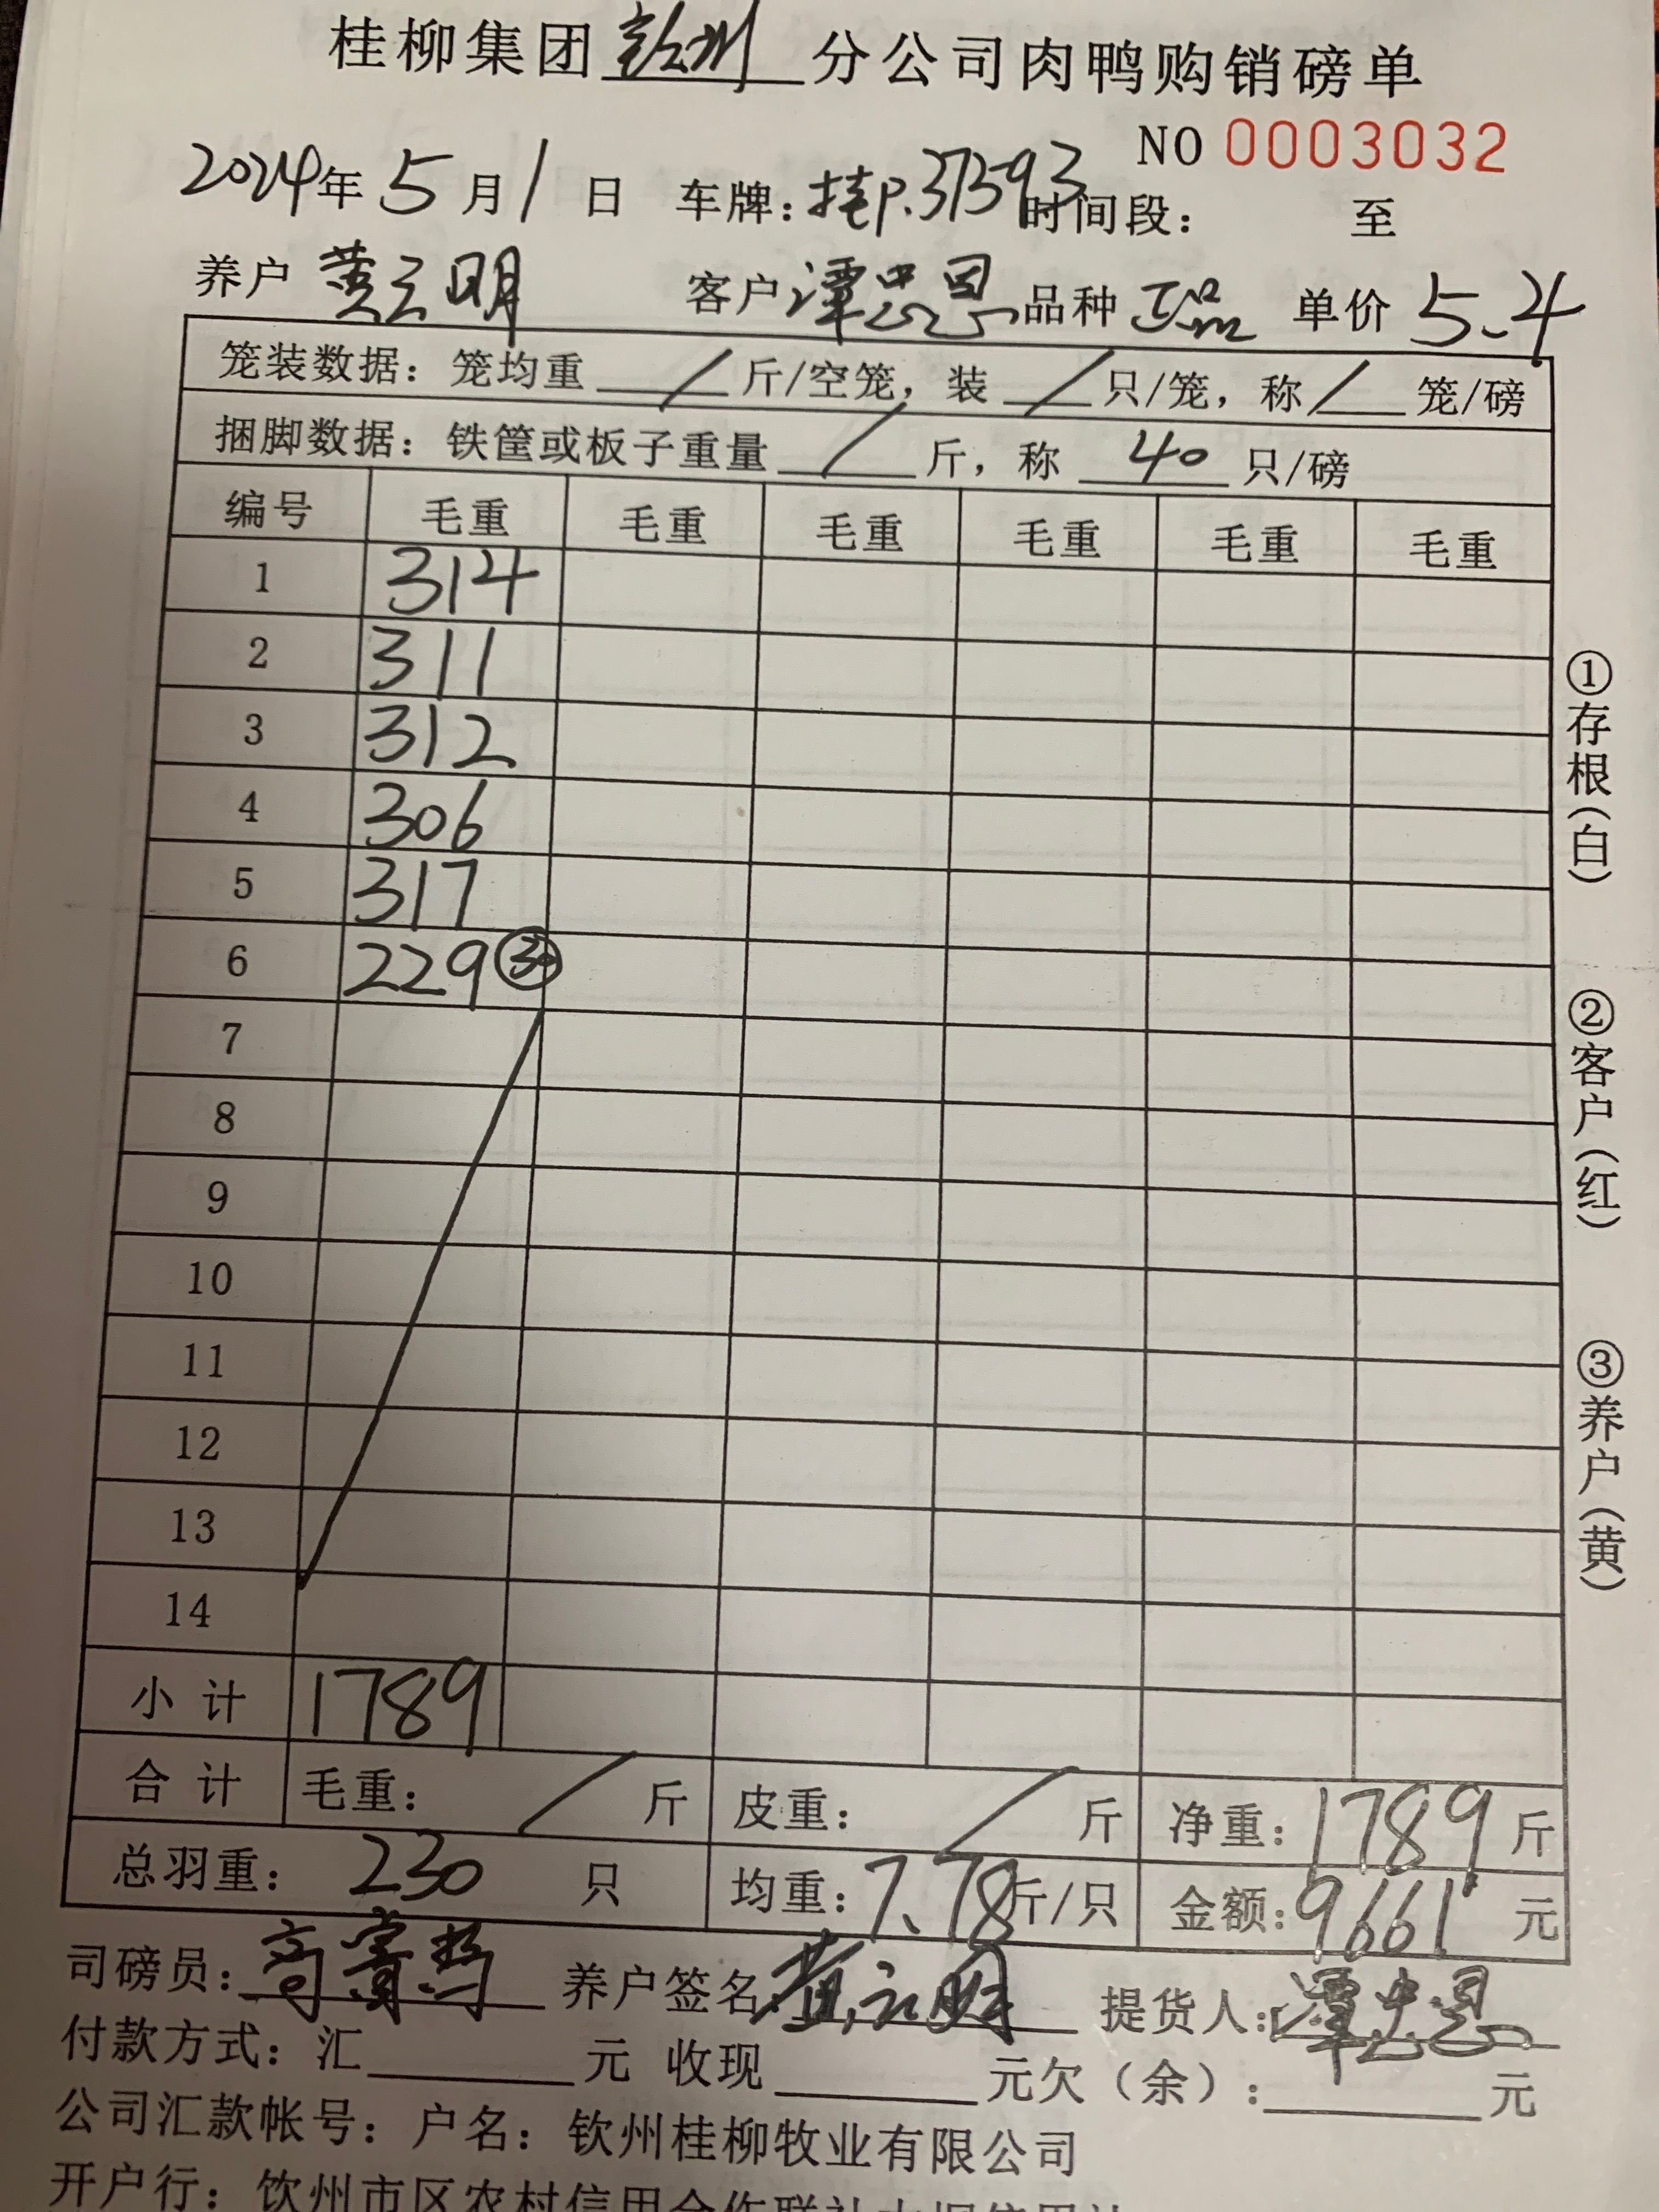 桂柳集团钦州分公司肉鸭购销磅单
NO 0003032
2024年5月1日 车牌:桂P.37393时间段: 至
养户 黄云明 客户 谭忠恩 品种 正品 单价 5.4
笼装数据:笼均重 / 斤/空笼,装 / 只/笼,称 / 笼/磅
捆脚数据:铁筐或板子重量 / 斤,称 40 只/磅
编号 毛重 毛重 毛重 毛重 毛重 毛重
1 314
2 311
3 312
4 306
5 317
6 229 ㉚
7
8
9
10
11
12
13
14
小计 1789
合计 毛重: / 斤 皮重: / 斤 净重:1789斤
总羽重: 230 只 均重:7.78斤/只 金额:9661元
司磅员: 养户签名:黄云明 提货人:谭忠恩
付款方式:汇 元 收现 元欠(余): 元
公司汇款帐号:户名:钦州桂柳牧业有限公司
开户行:钦州市区农村信用合作联社
①存根(白)
②客户(红)
③养户(黄)